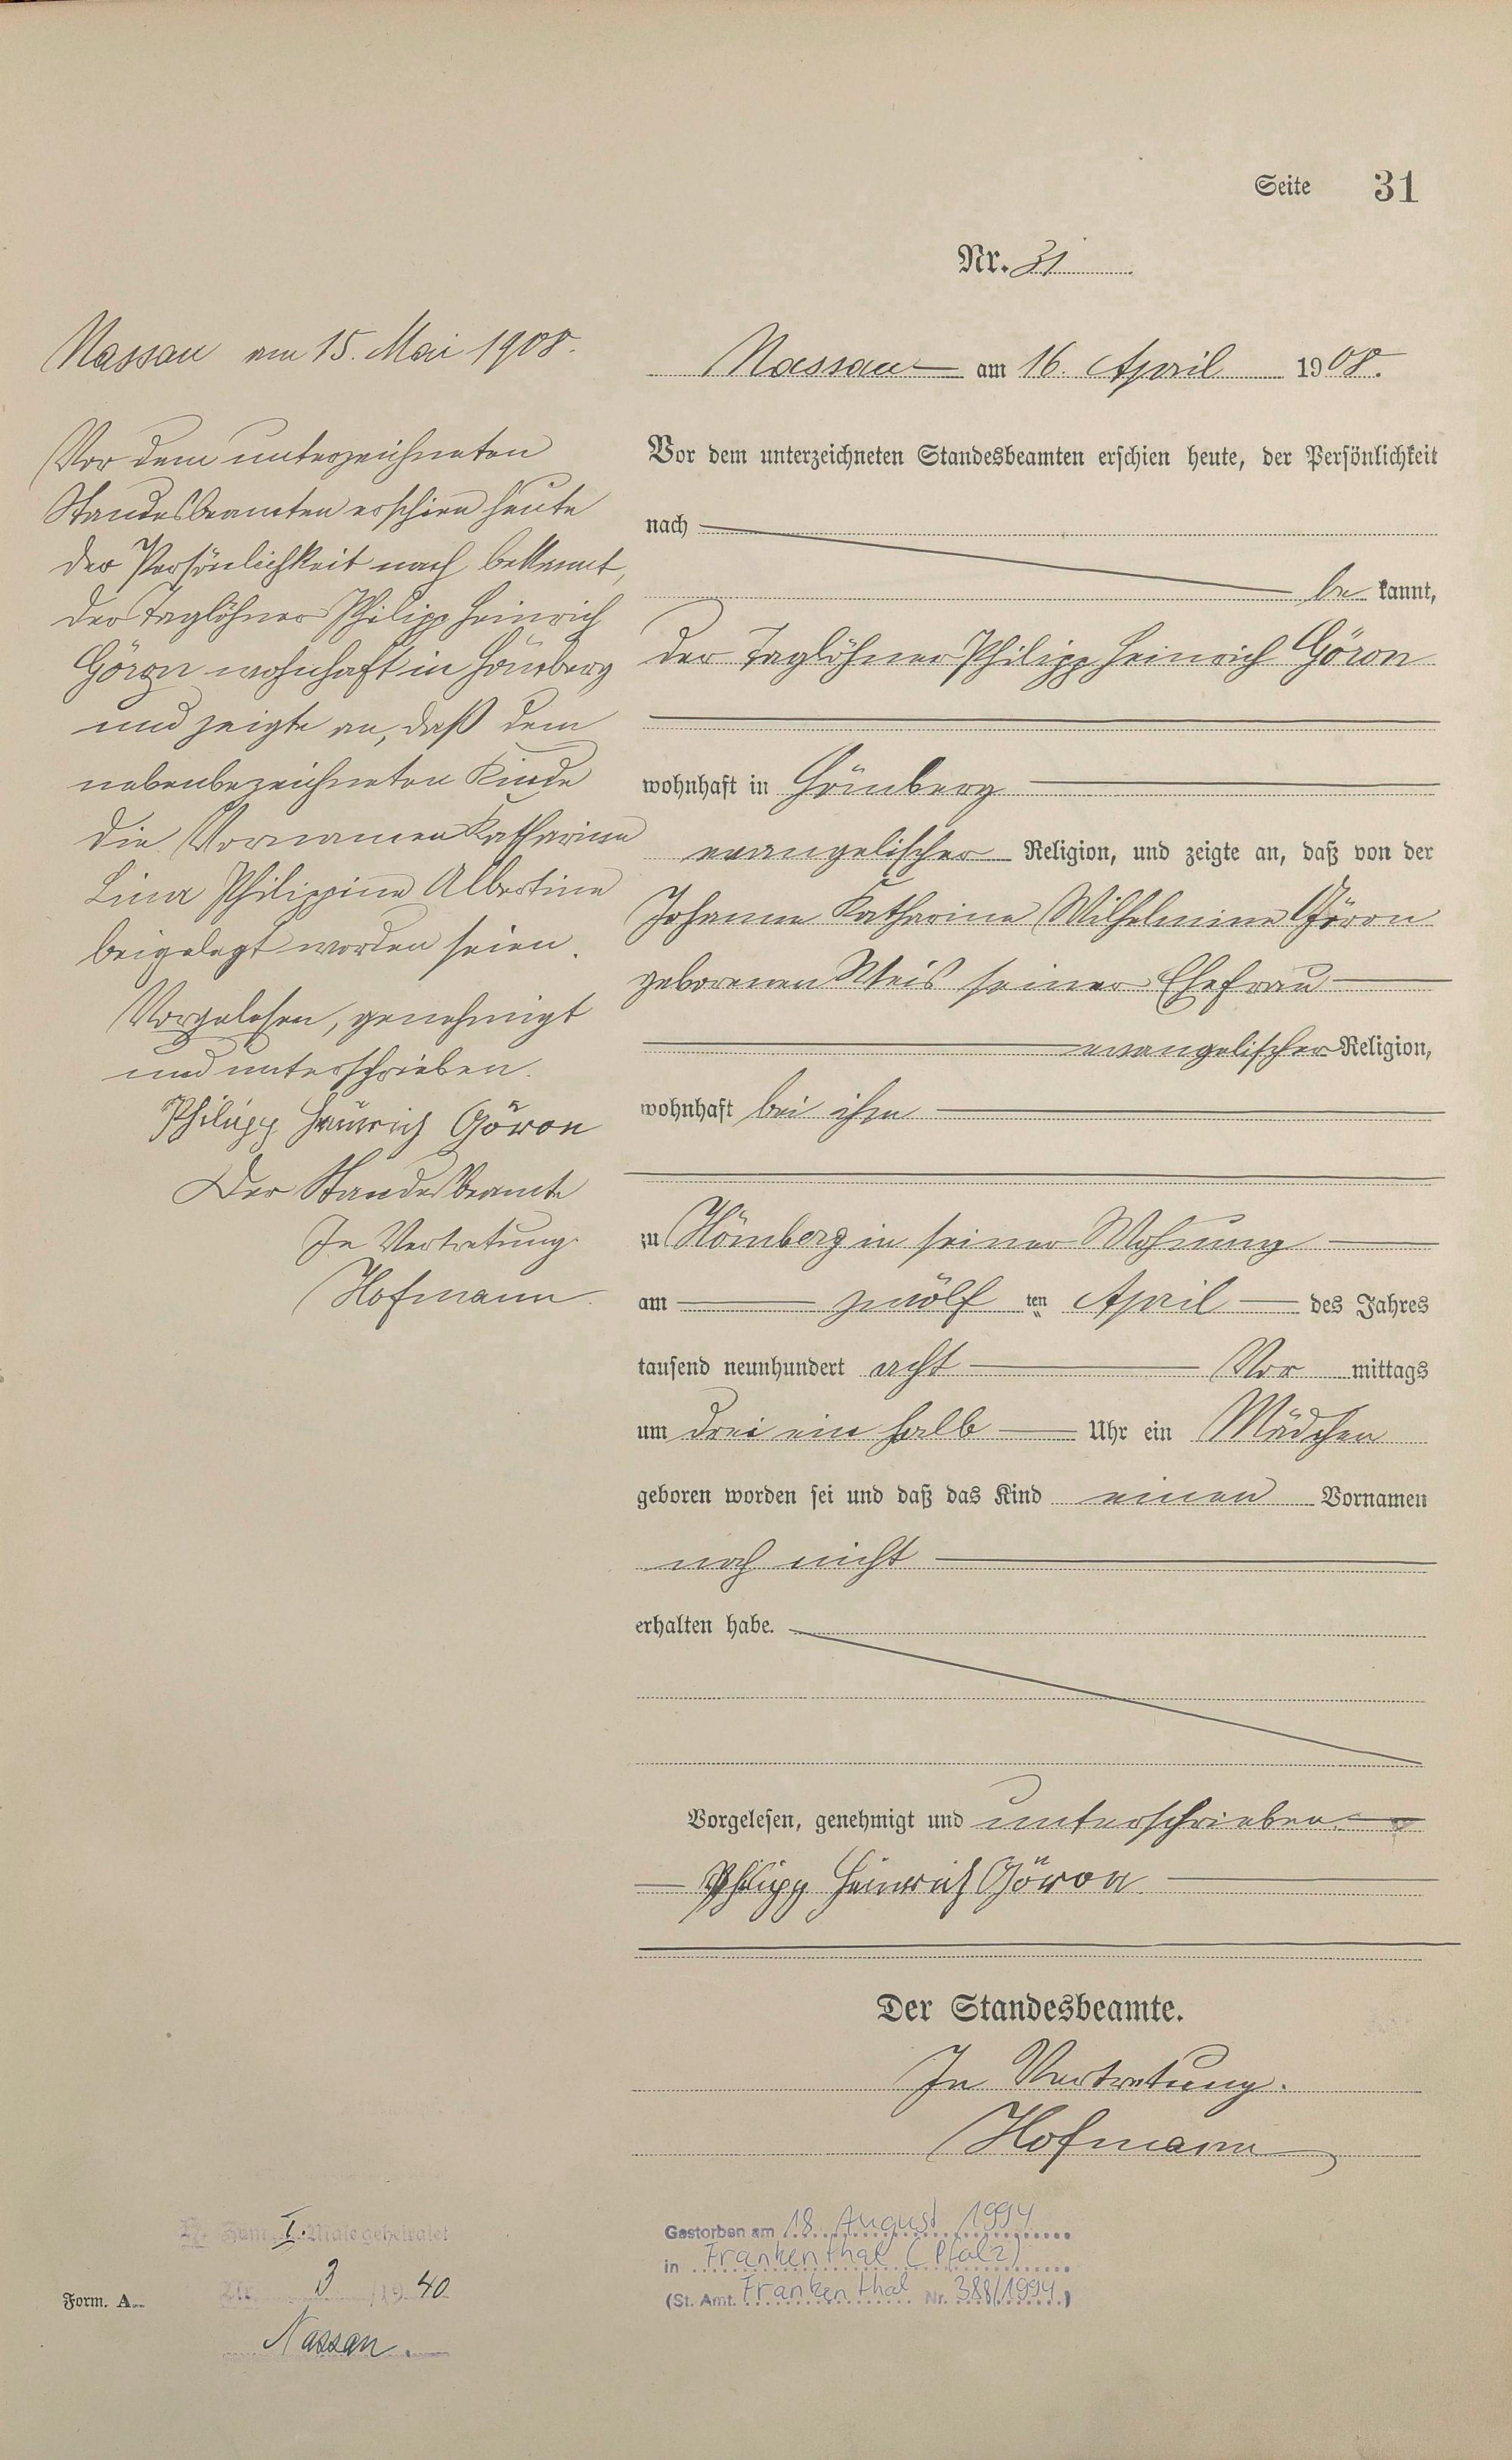 Seite 31
Nr. 31
Nassau am 15. Mai 1908.
Vor dem unterzeichneten
Standesbeamten erschien heute
der Persönlichkeit nach bekannt,
der Taglöhner Philipp Heinrich
Göron wohnhaft in Hömberg
und zeigte an, daß dem
nebenbezeichneten Kinde
die Vornamen Katharina
Lina Philippine Albertine
beigelegt worden seien.
Vorgelesen, genehmigt
und unterschrieben.
Philipp Heinrich Göron
Der Standesbeamte
In Vertretung.
Hofmann.
Nassau am 16. April 1908.
Vor dem unterzeichneten Standesbeamten erschien heute, der Persönlichkeit
nach
be kannt,
der Taglöhner Philipp Heinrich Göron
wohnhaft in Hömberg
evangelischer Religion, und zeigte an, daß von der
Johanna Katharina Wilhelmine Göron
geborenen Weis seiner Ehefrau
evangelischer Religion,
wohnhaft bei ihm
zu Hömberg in seiner Wohnung
am zwölf ten April des Jahres
tausend neunhundert acht Vor mittags
um drei ein halb Uhr ein Mädchen
geboren worden sei und daß das Kind einen Vornamen
noch nicht
erhalten habe.
Vorgelesen, genehmigt und unterschrieben.
Philipp Heinrich Göron
Der Standesbeamte.
In Vertretung.
Hofmann
Zum I. Male geheiratet
Nr. 3 /1940
Nassau.
Form. A.
Gestorben am 18. August 1994
in Frankenthal (Pfalz)
(St. Amt. Frankenthal Nr. 388/1994)